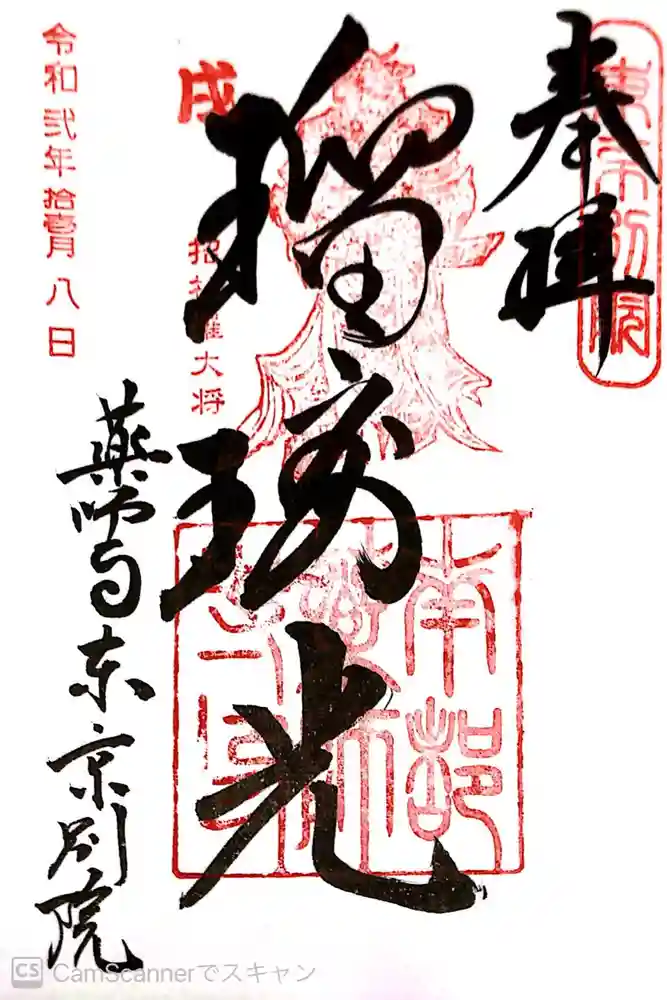 奉拝
東京別院
瑠璃光
戌
招杜羅大将
南都
之印
令和弐年拾壹月八日
薬師寺東京別院
CS CamScannerでスキャン